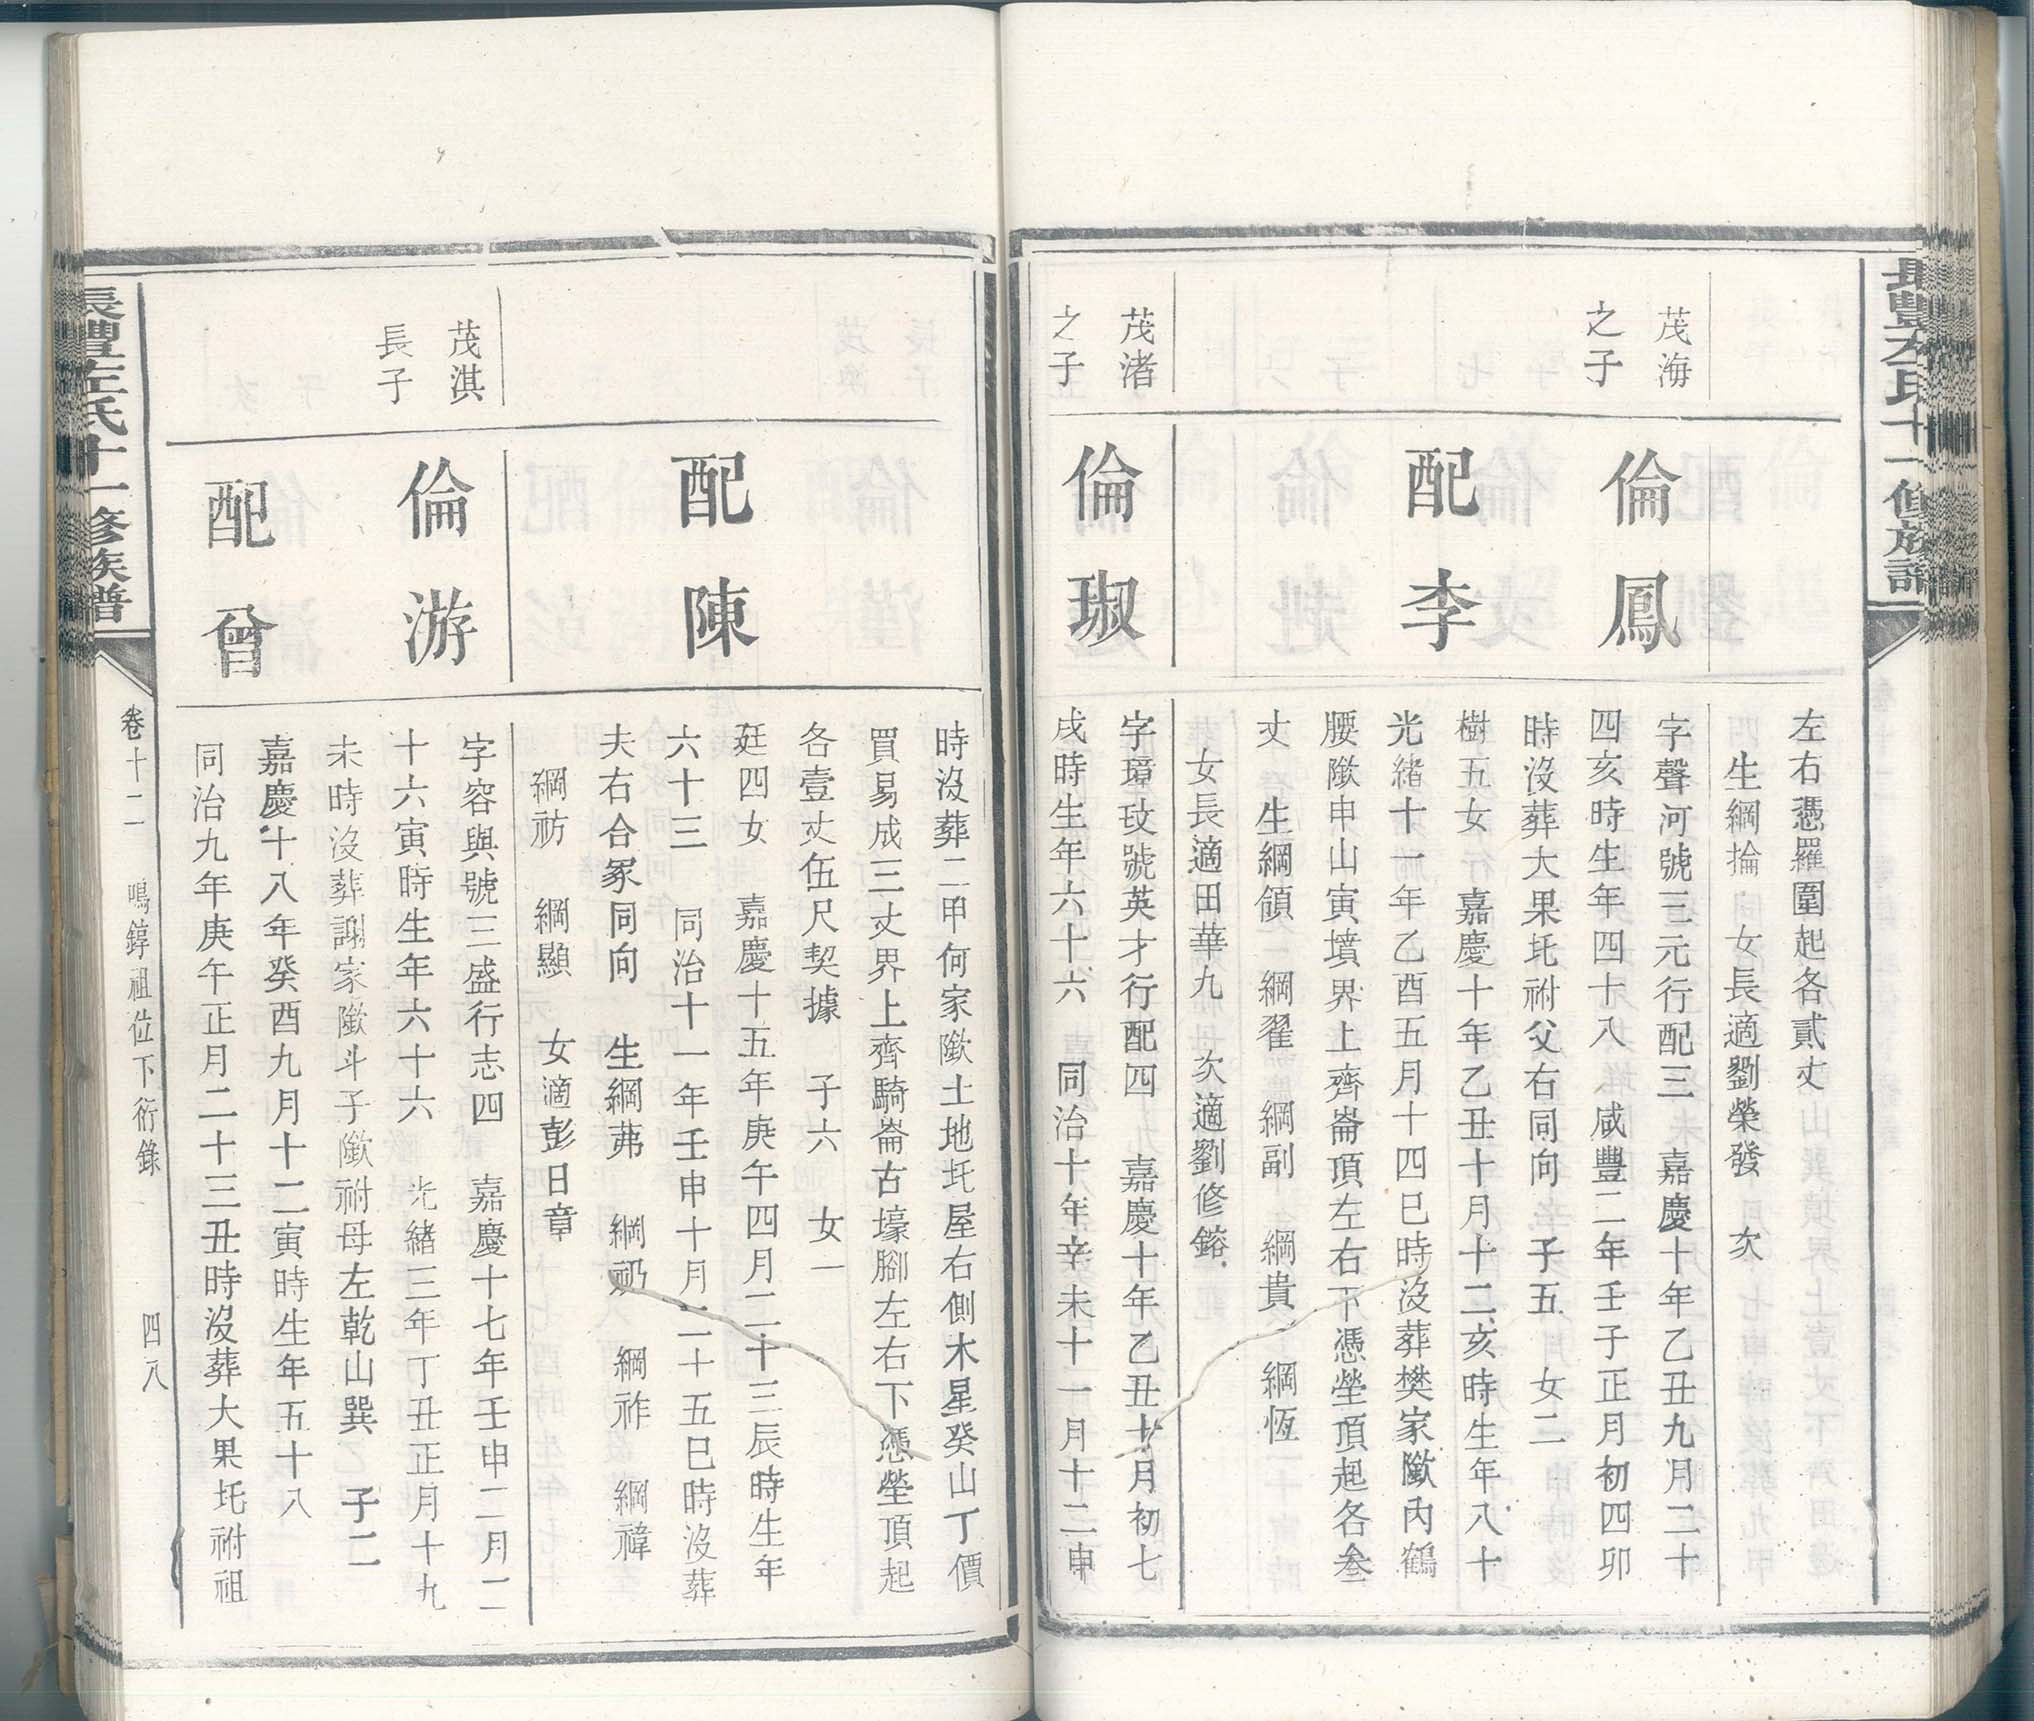 長豐左氏十一修族譜
左右憑羅圍起各貳丈
生綱掄 女長適劉榮發 次
茂海
之子
倫鳳
字聲河號三元行配三 嘉慶十年乙丑九月二十
四亥時生年四十八 咸豐二年壬子正月初四卯
時沒葬大果坉祔父右同向 子五 女二
配李
樹五女行 嘉慶十年乙丑十月十二亥時生年八十
光緒十一年乙酉五月十四巳時沒葬樊家隞內鶴
腰隞申山寅墳界上齊崙頂左右下憑塋頂起各叁
丈 生綱領 綱翟 綱副 綱貴 綱恆
女長適田華九 次適劉修鎔
茂渚
之子
倫琡
字璋玟號英才行配四 嘉慶十年乙丑十月初七
戌時生年六十六 同治十年辛未十一月十二申
時沒葬二甲何家隞土地坉屋右側木星癸山丁價
買易成三丈界上齊騎崙古壕腳左右下憑塋頂起
各壹丈伍尺契據 子六 女一
配陳
廷四女 嘉慶十五年庚午四月二十三辰時生年
六十三 同治十一年壬申十月二十五巳時沒葬
夫右合冢同向 生綱茀 綱礽 綱祚 綱禕
綱祊 綱顯 女適彭日章
茂淇
長子
倫游
字容與號三盛行志四 嘉慶十七年壬申二月二
十六寅時生年六十六 光緒三年丁丑正月十九
未時沒葬謝家隞斗子隞祔母左乾山巽 子二
配曾
嘉慶十八年癸酉九月十二寅時生年五十八
同治九年庚午正月二十三丑時沒葬大果坉祔祖
長豐左氏十一修族譜
卷十二 鳴錞祖位下衍錄 四八